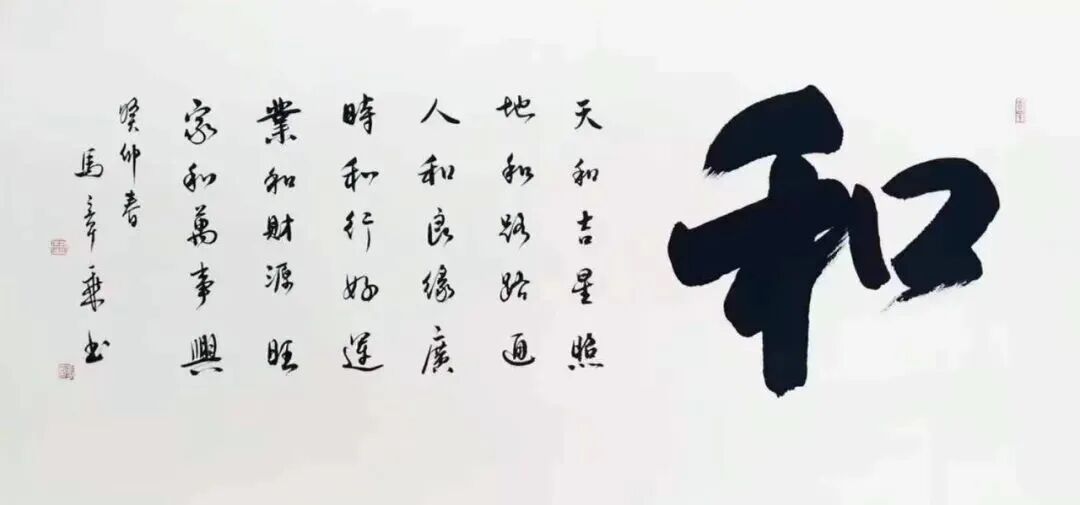 和
天和吉星照
地和路路通
人和良緣廣
時和行好運
業和財源旺
家和萬事興
癸卯春
馬章乘书